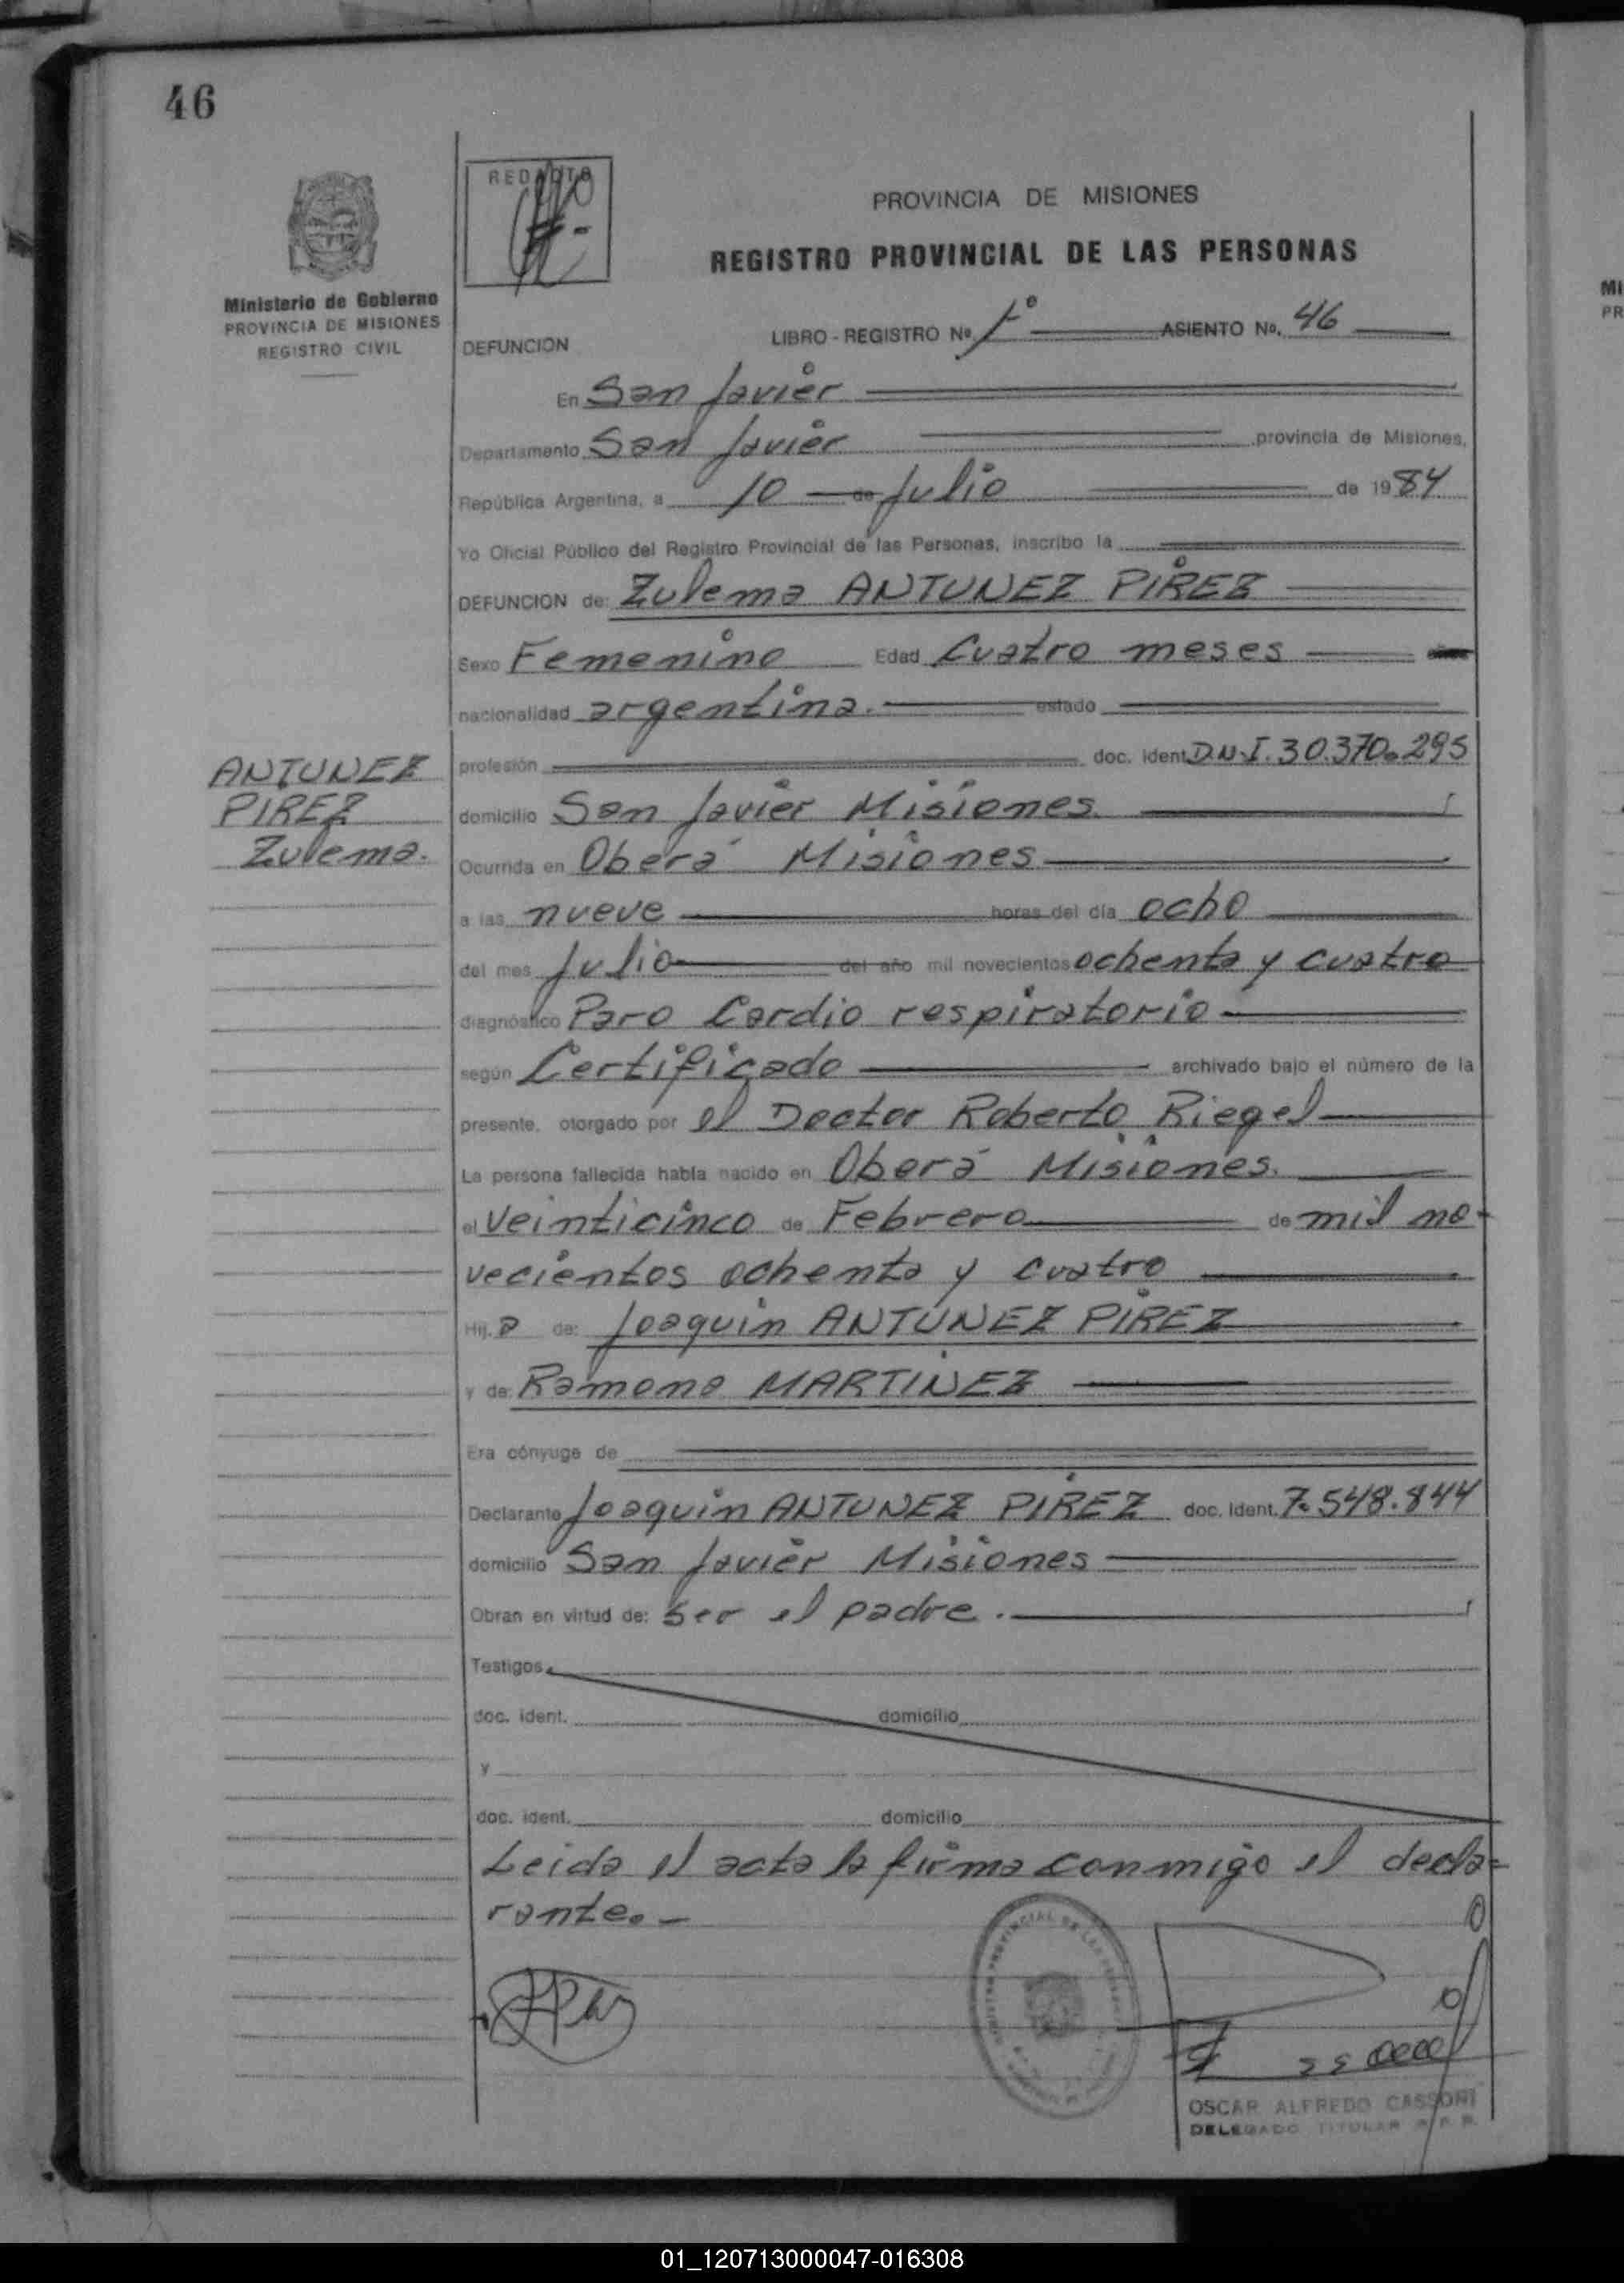 46
REDACTO
PROVINCIA DE MISIONES
REGISTRO PROVINCIAL DE LAS PERSONAS
Ministerio de Gobierno
PROVINCIA DE MISIONES
REGISTRO CIVIL
DEFUNCION LIBRO - REGISTRO Nº 1º ASIENTO No. 46
En San Javier
Departamento San Javier provincia de Misiones,
República Argentina, a 10 de Julio de 1984
Yo Oficial Público del Registro Provincial de las Personas, inscribo la
DEFUNCION de: Zulema ANTUNEZ PIREZ
Sexo Femenino Edad Cuatro meses
nacionalidad argentina. estado
profesión doc. ident. D.N.I. 30.370.295
ANTUNEZ
PIREZ
Zulema.
domicilio San Javier Misiones
Ocurrida en Oberá Misiones
a las nueve horas del día ocho
del mes Julio del año mil novecientos ochenta y cuatro
diagnóstico Paro Cardio respiratorio
según Certificado archivado bajo el número de la
presente, otorgado por el Doctor Roberto Riegel
La persona fallecida había nacido en Oberá Misiones.
el veinticinco de Febrero de mil no-
vecientos ochenta y cuatro
Hij.a de: Joaquin ANTUNEZ PIREZ
y de: Ramona MARTINEZ
Era cónyuge de
Declarante Joaquin ANTUNEZ PIREZ doc. ident. 7.548.844
domicilio San Javier Misiones
Obran en virtud de: ser el padre.
Testigos
doc. ident. domicilio
y
doc. ident. domicilio
Leida el acta la firma conmigo el decla=
rante.-
OSCAR ALFREDO CASSONI
DELEGADO TITULAR R. P. P.
01_120713000047-016308